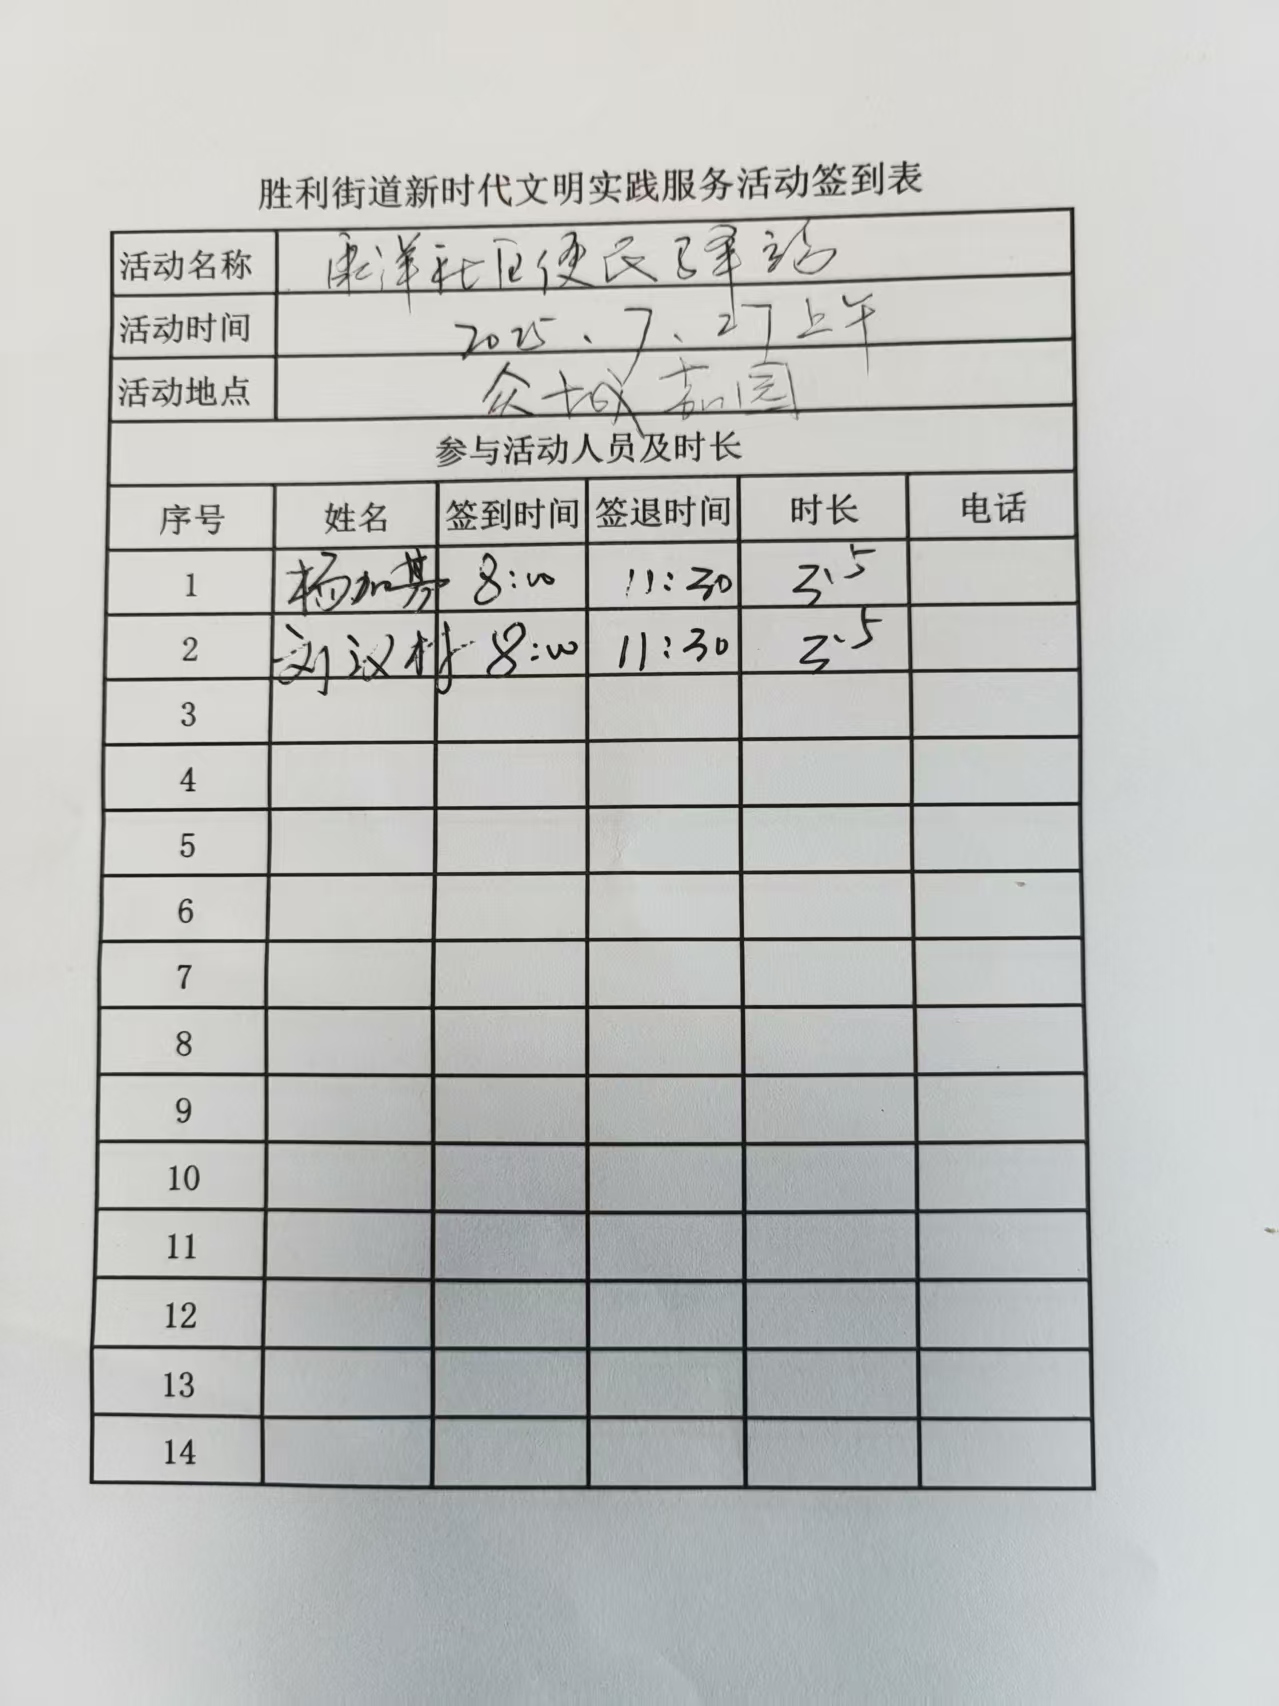 胜利街道新时代文明实践服务活动签到表
活动名称 东洋社区便民驿站
活动时间 2025、7、27上午
活动地点 众城嘉园
参与活动人员及时长
序号 姓名 签到时间 签退时间 时长 电话
1 杨加其 8:00 11:30 3.5
2 刘汉村 8:00 11:30 3.5
3
4
5
6
7
8
9
10
11
12
13
14